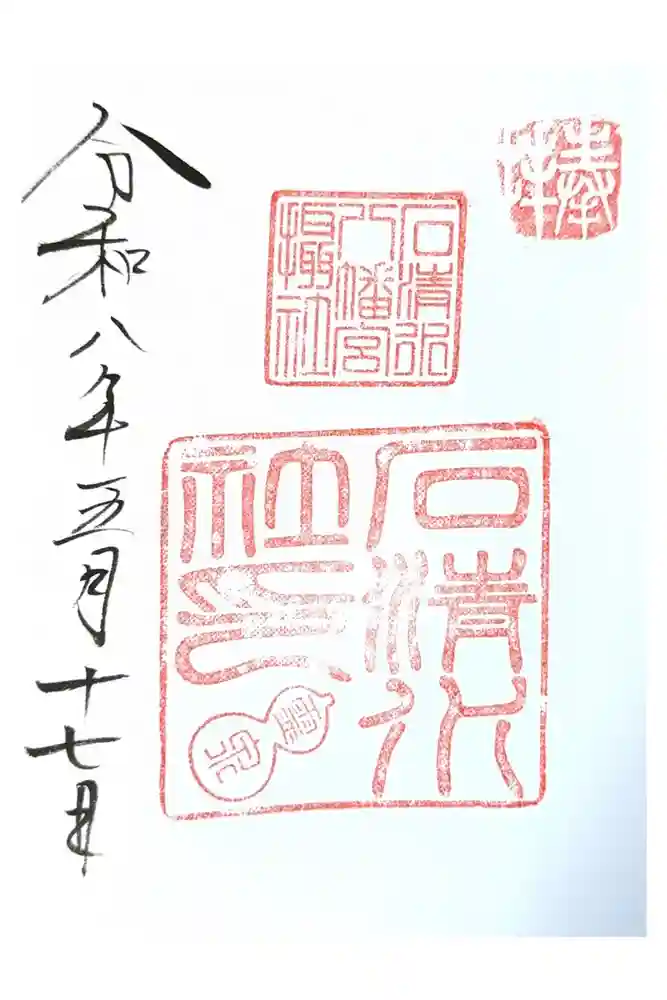 奉拝
石清水
八幡宮
攝社
石清水
社印
靈泉
令和八年五月十七日